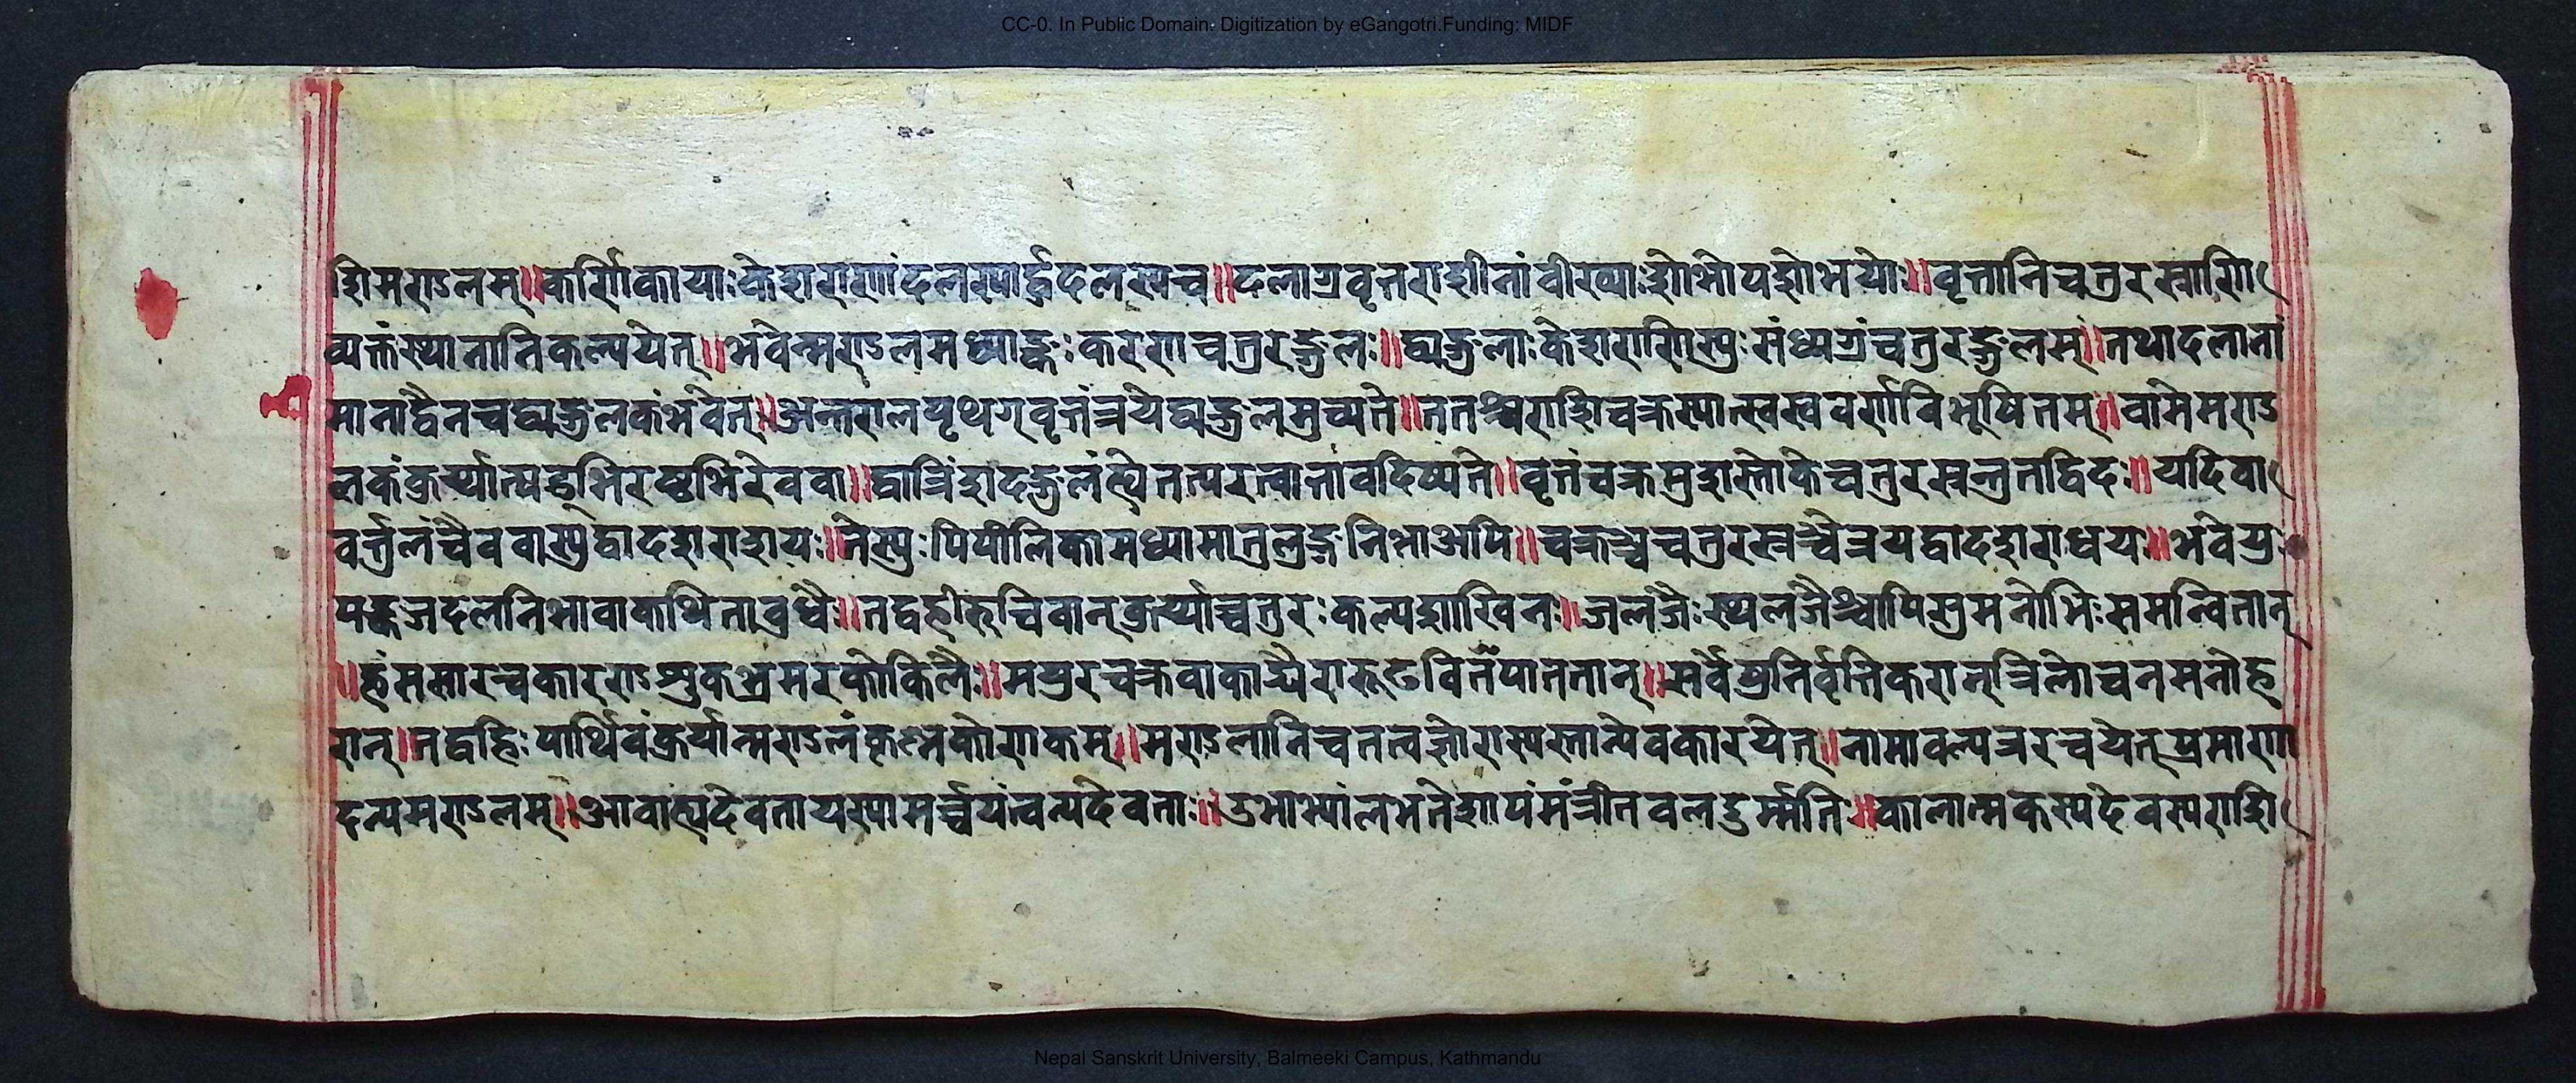 CC-0. In Public Domain. Digitization by eGangotri.Funding: MIDF
शिमण्डलम्॥कर्णिकायाःकेशराणांदलस्यार्द्धदलस्यच॥दलाग्रवृत्तराशीनांवीख्याःशोभोपशोभयोः॥वृत्तानिचतुरस्राणि
व्यक्तंस्थानानिकल्पयेत्॥भवेन्मण्डलमध्याङ्कःकरणचतुरङ्गुलः॥द्व्यङ्गुलाःकेशराणिस्युःसंध्यग्रंचतुरङ्गुलम्॥तथादलानां
मानाद्वैनचद्व्यङ्गुलकंभवेत्॥अन्तरालपृथग्वृत्तंत्रयेद्व्यङ्गुलमुच्यते॥ततश्चराशिचक्रस्यात्स्वस्ववर्णविभूषितम्॥वामेमण्ड
लकंकुर्य्यात्षड्भिरष्टभिरेववा॥द्वात्रिंशदङ्गुलं तावदिष्यते॥वृत्तंचक्रमुशस्तोकेचतुरस्रन्तुतद्विदः॥यदिवा
वर्त्तुलंचैववास्युद्वादशराशयः॥तेस्युःपिपीलिकामध्यामातुलुङ्गनिभाअपि॥चक्रञ्चचतुरस्रञ्चेत्रयद्वादशराध्वय॥भवेयु
पङ्कजदलनिभावाकथिताबुधैः॥तद्वहीरुचिवान्कुर्य्याच्चतुरःकल्पशाखिनः॥जलजैःस्थलजैश्चापिसुमनोभिःसमन्वितान्
॥हंससारन्वकारण्डशुकभ्रमरकोकिलैः॥मयुरचक्रवाकाद्यैरारूढवितपानतान्॥सर्वेर्तुनिर्वृत्तिकरान्त्रिलोचनमनोह
रान्॥तद्वहिःपार्थिवंकुर्यान्मण्डलंकृष्णकोणकम्॥मण्डलानिचतत्वज्ञोराश्यन्तान्येवकारयेत्॥नामावल्यत्ररचयेत्प्रमाण
दन्यमण्डलम्॥आवाह्यदेवतायस्यामर्च्चयंत्वन्यदेवता॥उभाभ्यांलभतेशापंमंत्रीतवलदुर्म्मतिः॥कालात्मकस्यदेवस्यराशि
Nepal Sanskrit University, Balmeeki Campus, Kathmandu